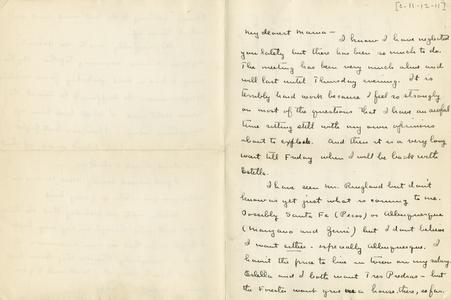 [2-11-12-11]
My dearest Mama -
I know I have neglected
you lately but there has been so much to do.
The meeting has been very much alive and
will last until Thursday evening. It is
terribly hard work because I feel so strongly
on most of the questions that I have an awful
time sitting still with my own opinions
about to explode. And then it is a very long
wait till Friday when I will be back with
Estella.
I have seen Mr. Ringland but don't
know as yet just what is coming to me.
Possibly Santa Fe (Pecos) or Albuquerque
(Manzano and Zuni) but I don't believe
I want either - especially Albuquerque. I
haven't the price to live in town on my salary.
Estella and I both want Tres Piedras - but
the Forester wont give me a house there, so far.